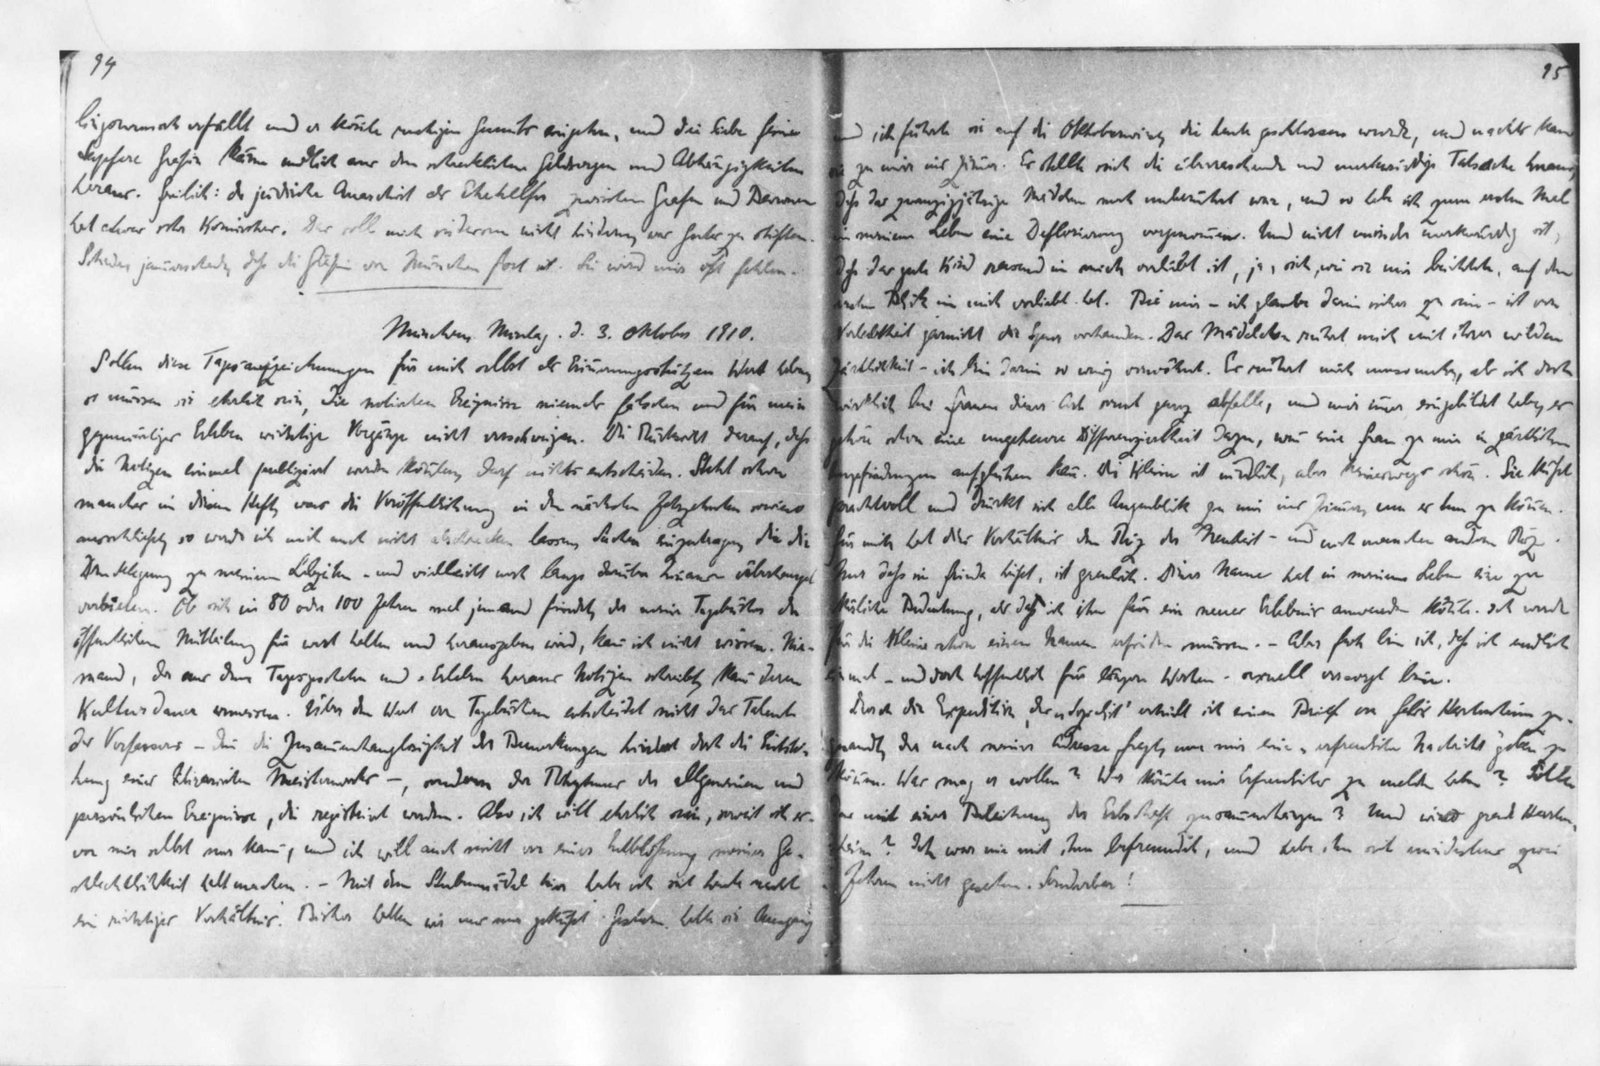 94
erfüllt und er könnte ruhigen Gemüts eingehen, und die liebe feine
Gräfin käme endlich aus den schrecklichen Geldsorgen und Abhängigkeiten
heraus. Freilich: der jüdische Anarchist als Ehehelfer zwischen Grafen und Baronin
hat etwas sehr Komisches. Das soll mich indessen nicht hindern, was Gutes zu stiften.
Schade, jammerschade, daß die Gräfin von München fort ist. Sie wird mir oft fehlen.
München, Montag, d. 3. Oktober 1910.
Sollen diese Tagesaufzeichnungen für mich selbst als Erinnerungsstützen Wert haben,
so müssen sie ehrlich sein, die notierten Ereignisse niemals fälschen und für mein
gegenwärtiges Erleben wichtige Vorgänge nicht verschweigen. Die Rücksicht darauf, daß
die Notizen einmal publiziert werden könnten, darf nichts entscheiden. Steht schon
manches in diesem Heft, was die Veröffentlichung in den nächsten Jahrzehnten sowieso
ausschließt, so werde ich mich auch nicht abschrecken lassen, Sachen einzutragen, die die
Drucklegung zu meinen Lebzeiten – und vielleicht noch lange darüber hinaus – überhaupt
verbieten. Ob sich in 80 oder 100 Jahren mal jemand findet, der meine Tagebücher der
öffentlichen Mitteilung für wert halten und herausgeben wird, kann ich nicht wissen. Nie-
mand, der aus dem Tagesgeschehen und -Erleben heraus Notizen schreibt, kann deren
Kulturdauer ermessen. Über den Wert von Tagebüchern entscheidet nicht das Talent
des Verfassers – denn die Zusammenhanglosigkeit der Bemerkungen hindert doch die Entste-
hung eines literarischen Meisterwerks –, sondern der Rhythmus der allgemeinen und
persönlichen Ereignisse, die registriert werden. Also, ich will ehrlich sein, soweit ich es
vor mir selbst nur kann, und ich will auch nicht vor einer Entblößung meiner Ge-
schlechtlichkeit haltmachen. – Mit dem Stubenmädel hier habe ich seit heute nacht
ein richtiges Verhältnis. Bisher hatten wir uns nur geküßt. Gestern hatte sie Ausgang
95
und ich führte sie auf die Oktoberwiese, die heute geschlossen wurde, und nachts kam
sie zu mir ins Zimmer. Es stellte sich die überraschende und merkwürdige Tatsache heraus,
daß das zwanzigjährige Mädchen noch unberührt war, und so habe ich zum ersten Mal
in meinem Leben eine Deflorierung vorgenommen. Und nicht minder merkwürdig ist,
daß das gute Kind rasend in mich verliebt ist, ja, sich, wie sie mir beichtete, auf den
ersten Blick in mich verliebt hat. Bei mir – ich glaube darin sicher zu sein – ist von
Verliebtheit garnicht die Spur vorhanden. Das Mädelchen rührt mich mit ihrer wilden
Zärtlichkeit – ich bin darin so wenig verwöhnt. Es rührt mich umsomehr, als ich doch
wirklich bei Frauen dieser Art sonst ganz abfalle, und mir immer eingebildet habe, es
gehöre schon eine ungeheure Differenziertheit dazu, wenn eine Frau zu mir in zärtlichen
Empfindungen aufglühen kann. Die Kleine ist niedlich, aber keineswegs schön. Sie küßt
prachtvoll und drückt sich alle Augenblicke zu mir ins Zimmer, um es tun zu können.
Für mich hat dies Verhältnis den Reiz der Neuheit – und noch manchen andern Reiz.
Nur daß sie Frieda heißt, ist greulich. Dieser Name hat in meinem Leben eine zu
Bedeutung, als daß ich ihn für ein neues Erlebnis anwenden könnte. Ich werde
für die Kleine schon einen Namen erfinden müssen. – Aber froh bin ich, daß ich endlich
einmal – und doch hoffentlich für längere Wochen – sexuell versorgt bin.
Durch die Expedition des „Sozialist" erhielt ich einen Brief von Felix Hartenheim zu-
gesandt, der nach meiner Adresse fragt, um mir eine „erfreuliche Nachricht" geben zu
können. Was mag er wollen? Was könnte mir Erfreuliches zu melden haben? Sollte
das mit einer Beleihung der Erbschaft zusammenhängen? Und wieso grade Harten-
heim? Ich war nie mit ihm befreundet, und habe ihn seit mindestens zwei
Jahren nicht gesehen. Sonderbar!